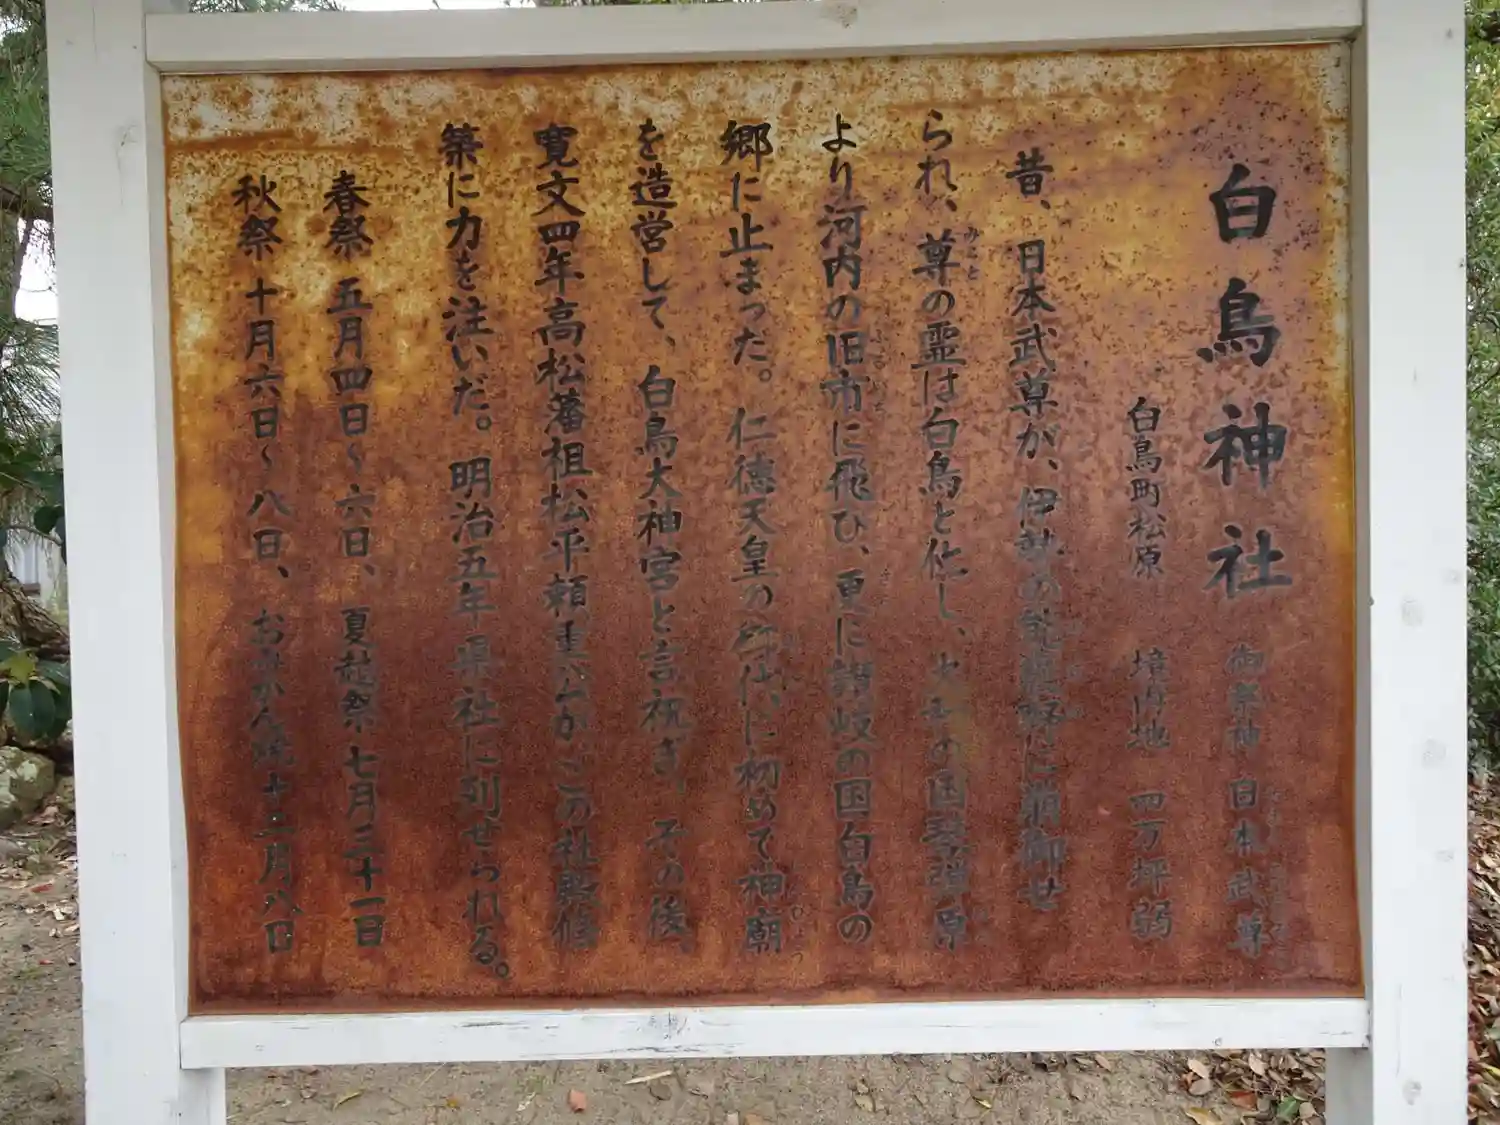 白鳥神社 御祭神 日本武尊
白鳥町松原 境内地 四万坪弱
昔、日本武尊が、伊勢の能褒野に崩御せ
られ、尊の霊は白鳥と化し、大和の国琴弾原
より河内の旧市に飛び、更に讃岐の国白鳥の
郷に止まった。仁徳天皇の御代に初めて神廟
を造営して、白鳥大神宮と言祝ぎ、その後、
寛文四年高松藩祖松平頼重公がこの社殿修
築に力を注いだ。明治五年県社に列せられる。
春祭 五月四日~六日、夏越祭 七月三十一日
秋祭 十月六日~八日、おみかん焼 十二月八日